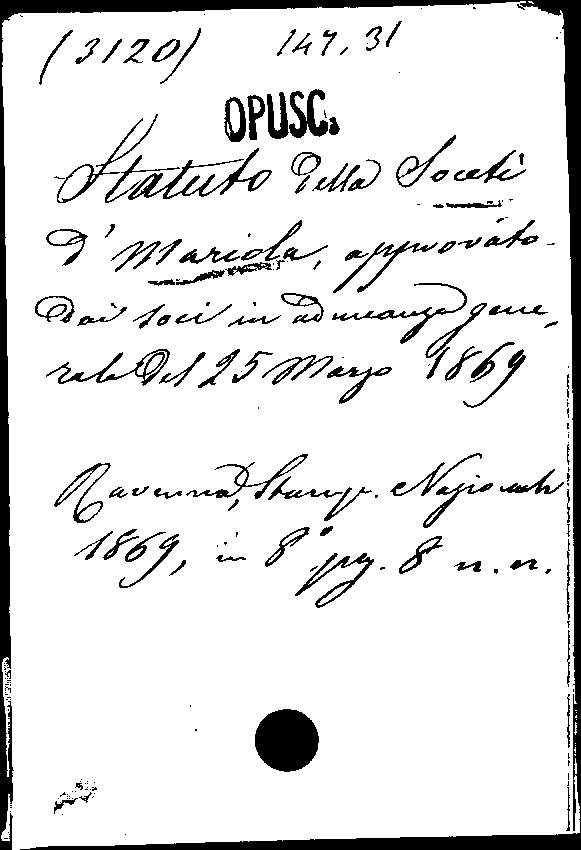 (3120) 147.31
OPUSC.
Statuto della Società
d'Mariola, approvato
dai soci in adunanza gene,
rale del 25 Marzo 1869
Ravenna, Stamp. Nazionale
1869, in 8° pg. 8 n.n.